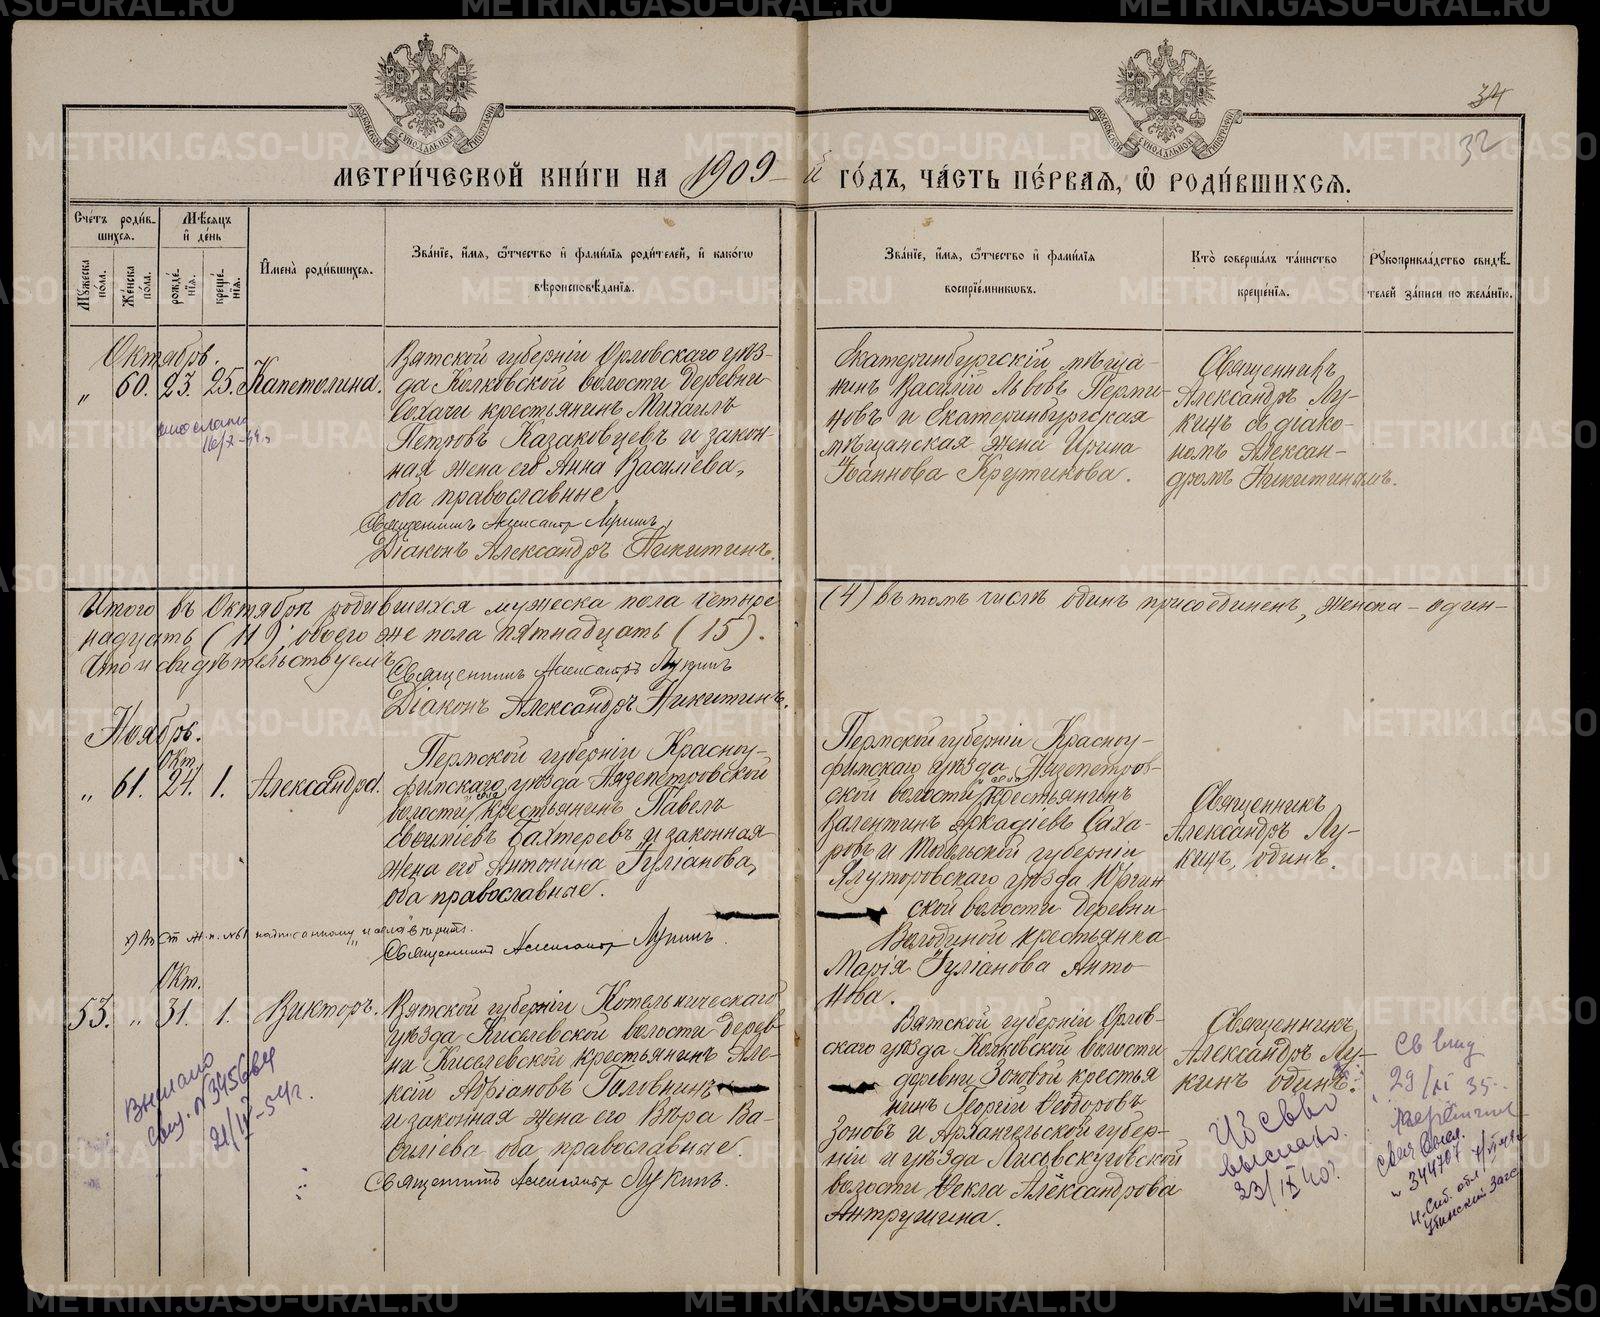 34
32
МЕТРИ́ЧЕСКОЙ КНИ́ГИ НА 1909-й ГО́ДЪ, ЧА́СТЬ ПЕ́РВАЯ, Ѡ РОДИ́ВШИХСЯ.
Сче́тъ роди́в-
шихся.
Мꙋжеска по́ла.
Же́нска по́ла.
Мѣ́сяцъ
и де́нь
рожде́-
нїя.
креще́-
нїя.
Имена̀ роди́вшихся.
Зва́нїе, и́мя, ѻ́тчество и фами́лїя роди́телей, и како́гѡ
вѣроисповѣ́данїя.
Зва́нїе, и́мя, ѻ́тчество и фами́лїя
воспрїе́мниковъ.
Кто̀ соверша́лъ та́инство
креще́нїя.
Рꙋкоприкла́дство свидѣ́-
телей за́писи по жела́нїю.
Октябрь.
„ 60. 23. 25. Капетолина.
Вятской губерніи Орловскаго уѣз-
да Колковской волости деревни
Сохачи крестьянинъ Михаилъ
Петровъ Казаковцевъ и закон-
ная жена его Анна Василіева,
оба православные
Священникъ Александръ Лукинъ
Діаконъ Александръ Никитинъ.
Екатеринбургскій мѣща-
нинъ Василій Львовъ
новъ и Екатеринбургская
мѣщанская жена Ирина
Іоаннова Крутикова.
Священникъ
Александръ Лу-
кинъ съ діако-
номъ Алексан-
дромъ Никитинымъ.
Итого въ Октябрѣ родившихся мужеска пола четыре
(4) въ томъ числѣ одинъ присоединен, женска - один-
надцать (11), обоего же пола пятнадцать (15).
Что и свидѣтельствуемъ
Священникъ Александръ Лукинъ
Діаконъ Александръ Никитинъ.
Ноябрь.
Окт.
„ 61. 24. 1. Александра.
Пермской губерніи Красноу-
фимскаго уѣзда Нязепетровской
волости крестьянинъ Павелъ
Евсиміевъ Бахтеревъ и законная
жена его Антонина Іуліанова,
оба православные.
Священникъ Александръ Лукинъ.
Пермской губерніи Красноу-
фимскаго уѣзда Нязепетров-
ской волости крестьянинъ
Валентинъ Аркадіевъ Саха-
ровъ и Тобольской губерніи
Ялуторовскаго уѣзда Юргин-
ской волости деревни
Володиной крестьянка
Марія Іуліанова Анто-
нова.
Священникъ
Александръ Лу-
кинъ, одинъ.
Окт.
53. „ 31. 1. Викторъ.
Вятской губерніи Котельническаго
уѣзда Киселевской волости дерев-
ни Киселевской крестьянинъ Але-
ксій Адріановъ Головнинъ
и законная жена его Вѣра Ва-
силіева оба православные.
Священникъ Александръ Лукинъ.
Вятской губерніи Орлов-
скаго уѣзда Колковской волости
деревни Зоновой крестья
нинъ Георгій Ѳеодоровъ
Зоновъ и Архангельской губер-
ніи и уѣзда Лисьвскуговской
волости Ѳекла Александрова
Антрушина.
Священникъ
Александръ Лу-
кинъ один.
Выслано
№ 345684
21/IV-54г.
выслано.
23/IX 40г.
29/XI 35
344707
Н-Сиб. обл
Убинский Загс